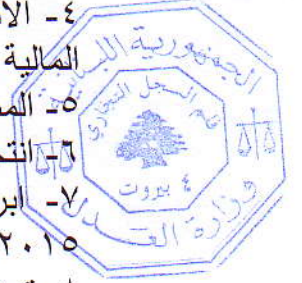 ٤- الا
المالية
٥- الم
٦- انت
٧- ابر
٢٠١٥
الجمهورية اللبنانية
قلم السجل التجاري
٤ بيروت
وزارة العدل